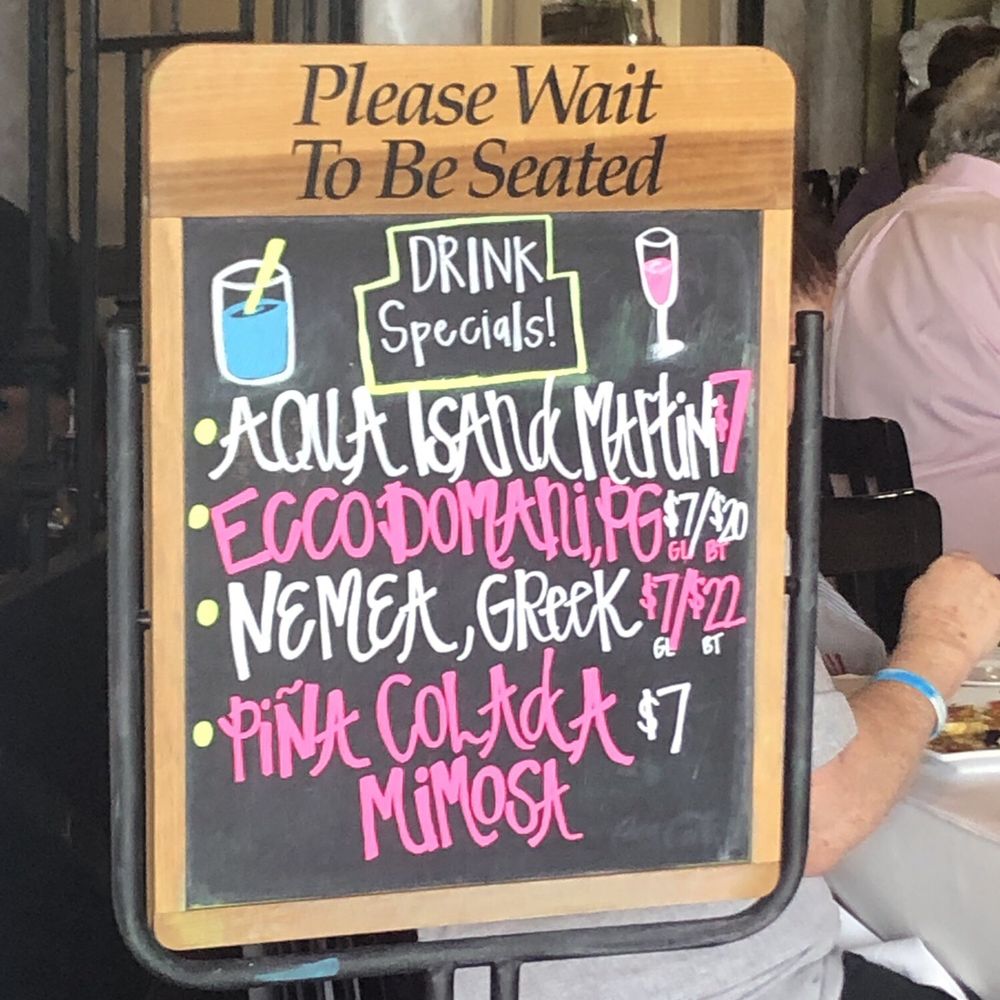 Please Wait
To Be Seated
DRINK
Specials!
AQUA ISAND MARTINI $7
ECCO DOMANI, PG $7/$20
GL BT
NEMEA, GREEK $7/$22
GL BT
PIÑA COLADA $7
MIMOSA